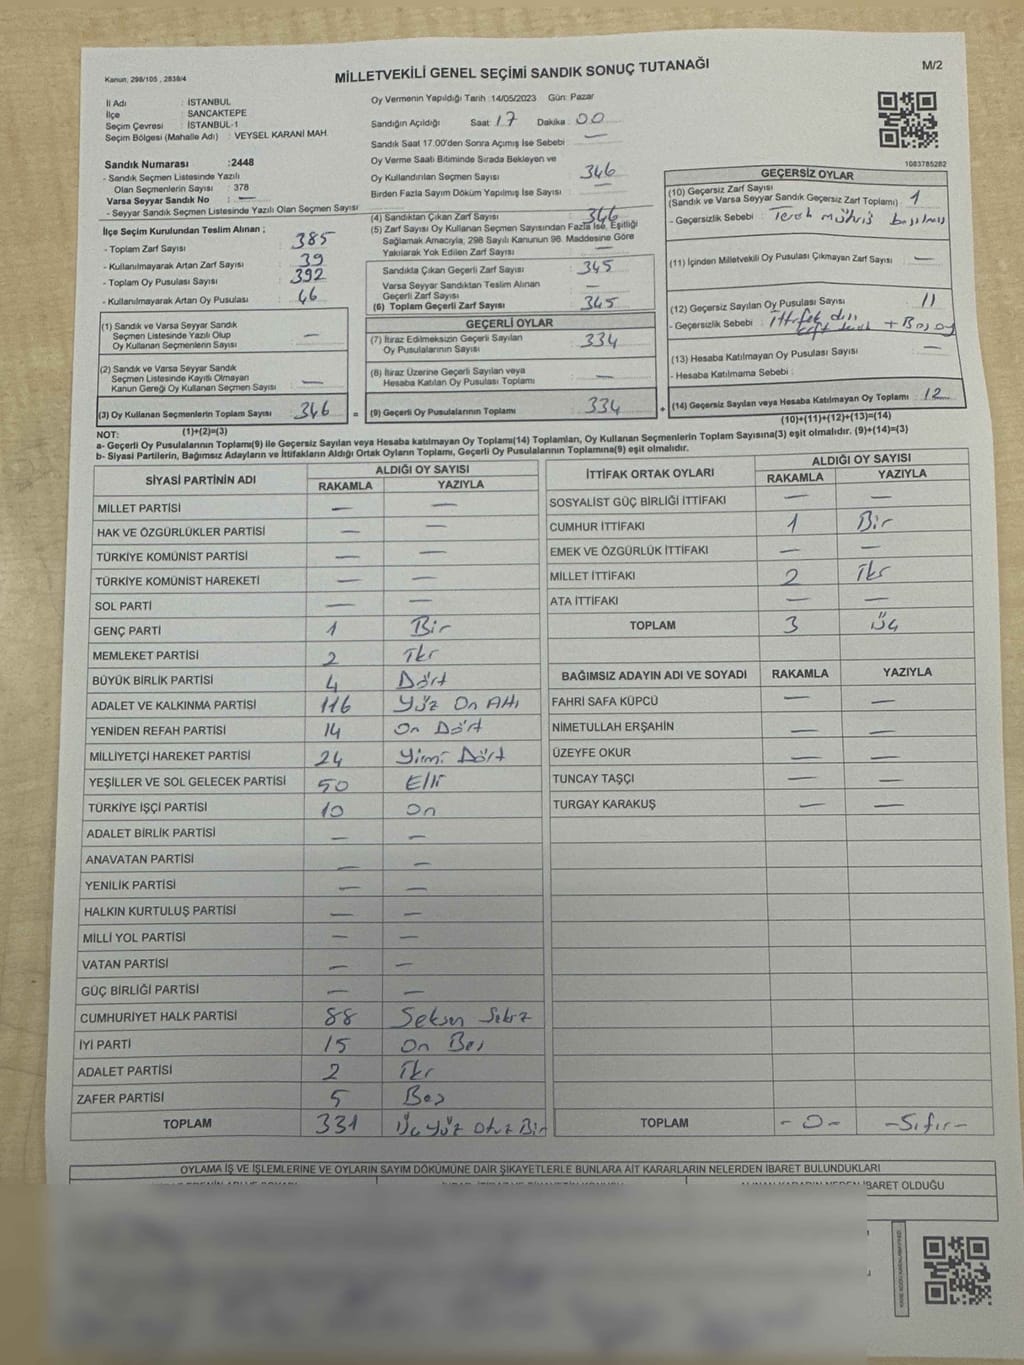 Kanun: 298/105 , 2839/4
MİLLETVEKİLİ GENEL SEÇİMİ SANDIK SONUÇ TUTANAĞI
M/2
İl Adı : İSTANBUL
İlçe : SANCAKTEPE
Seçim Çevresi : İSTANBUL-1
Seçim Bölgesi (Mahalle Adı) : VEYSEL KARANİ MAH.
Sandık Numarası :2448
- Sandık Seçmen Listesinde Yazılı
Olan Seçmenlerin Sayısı : 378
Varsa Seyyar Sandık No : —
- Seyyar Sandık Seçmen Listesinde Yazılı Olan Seçmen Sayısı
İlçe Seçim Kurulundan Teslim Alınan ;
- Toplam Zarf Sayısı 385
- Kullanılmayarak Artan Zarf Sayısı 39
- Toplam Oy Pusulası Sayısı 392
- Kullanılmayarak Artan Oy Pusulası 46
(1) Sandık ve Varsa Seyyar Sandık
Seçmen Listesinde Yazılı Olup
Oy Kullanan Seçmenlerin Sayısı —
(2) Sandık ve Varsa Seyyar Sandık
Seçmen Listesinde Kayıtlı Olmayan
Kanun Gereği Oy Kullanan Seçmen Sayısı —
(3) Oy Kullanan Seçmenlerin Toplam Sayısı 346 =
(1)+(2)=(3)
Oy Vermenin Yapıldığı Tarih :14/05/2023 Gün: Pazar
Sandığın Açıldığı Saat : 17 Dakika : 00
Sandık Saat 17.00'den Sonra Açımış İse Sebebi —
Oy Verme Saati Bitiminde Sırada Bekleyen ve
Oy Kullandırılan Seçmen Sayısı 346
Birden Fazla Sayım Döküm Yapılmış İse Sayısı —
(4) Sandıktan Çıkan Zarf Sayısı 346
(5) Zarf Sayısı Oy Kullanan Seçmen Sayısından Fazla İse, Eşitliği
Sağlamak Amacıyla, 298 Sayılı Kanunun 98. Maddesine Göre
Yakılarak Yok Edilen Zarf Sayısı —
Sandıkta Çıkan Geçerli Zarf Sayısı 345
Varsa Seyyar Sandıktan Teslim Alınan
Geçerli Zarf Sayısı —
(6) Toplam Geçerli Zarf Sayısı 345
GEÇERLİ OYLAR
(7) İtiraz Edilmeksizin Geçerli Sayılan
Oy Pusulalarının Sayısı 334
(8) İtiraz Üzerine Geçerli Sayılan veya
Hesaba Katılan Oy Pusulası Toplamı —
(9) Geçerli Oy Pusulalarının Toplamı 334 +
1083785282
GEÇERSİZ OYLAR
(10) Geçersiz Zarf Sayısı
(Sandık ve Varsa Seyyar Sandık Geçersiz Zarf Toplamı) 1
- Geçersizlik Sebebi : Tercih mührü basılmış
(11) İçinden Milletvekili Oy Pusulası Çıkmayan Zarf Sayısı —
(12) Geçersiz Sayılan Oy Pusulası Sayısı 11
- Geçersizlik Sebebi : İttifak dışı + Boş oy
(13) Hesaba Katılmayan Oy Pusulası Sayısı —
- Hesaba Katılmama Sebebi :
(14) Geçersiz Sayılan veya Hesaba Katılmayan Oy Toplamı 12
(10)+(11)+(12)+(13)=(14)
NOT:
a- Geçerli Oy Pusulalarının Toplamı(9) ile Geçersiz Sayılan veya Hesaba katılmayan Oy Toplamı(14) Toplamları, Oy Kullanan Seçmenlerin Toplam Sayısına(3) eşit olmalıdır. (9)+(14)=(3)
b- Siyasi Partilerin, Bağımsız Adayların ve İttifakların Aldığı Ortak Oyların Toplamı, Geçerli Oy Pusulalarının Toplamına(9) eşit olmalıdır.
SİYASİ PARTİNİN ADI ALDIĞI OY SAYISI
RAKAMLA YAZIYLA
MİLLET PARTİSİ — —
HAK VE ÖZGÜRLÜKLER PARTİSİ — —
TÜRKİYE KOMÜNİST PARTİSİ — —
TÜRKİYE KOMÜNİST HAREKETİ — —
SOL PARTİ — —
GENÇ PARTİ 1 Bir
MEMLEKET PARTİSİ 2 İki
BÜYÜK BİRLİK PARTİSİ 4 Dört
ADALET VE KALKINMA PARTİSİ 116 Yüz On Altı
YENİDEN REFAH PARTİSİ 14 On Dört
MİLLİYETÇİ HAREKET PARTİSİ 24 Yirmi Dört
YEŞİLLER VE SOL GELECEK PARTİSİ 50 Elli
TÜRKİYE İŞÇİ PARTİSİ 10 On
ADALET BİRLİK PARTİSİ — —
ANAVATAN PARTİSİ — —
YENİLİK PARTİSİ — —
HALKIN KURTULUŞ PARTİSİ — —
MİLLİ YOL PARTİSİ — —
VATAN PARTİSİ — —
GÜÇ BİRLİĞİ PARTİSİ — —
CUMHURİYET HALK PARTİSİ 88 Seksen Sekiz
İYİ PARTİ 15 On Beş
ADALET PARTİSİ 2 İki
ZAFER PARTİSİ 5 Beş
TOPLAM 331 Üç Yüz Otuz Bir
İTTİFAK ORTAK OYLARI ALDIĞI OY SAYISI
RAKAMLA YAZIYLA
SOSYALİST GÜÇ BİRLİĞİ İTTİFAKI — —
CUMHUR İTTİFAKI 1 Bir
EMEK VE ÖZGÜRLÜK İTTİFAKI — —
MİLLET İTTİFAKI 2 İki
ATA İTTİFAKI — —
TOPLAM 3 Üç
BAĞIMSIZ ADAYIN ADI VE SOYADI RAKAMLA YAZIYLA
FAHRİ SAFA KÜPCÜ — —
NİMETULLAH ERŞAHİN — —
ÜZEYFE OKUR — —
TUNCAY TAŞÇI — —
TURGAY KARAKUŞ — —
TOPLAM -0- -Sıfır-
OYLAMA İŞ VE İŞLEMLERİNE VE OYLARIN SAYIM DÖKÜMÜNE DAİR ŞİKAYETLERLE BUNLARA AİT KARARLARIN NELERDEN İBARET BULUNDUKLARI
İBARET OLDUĞU